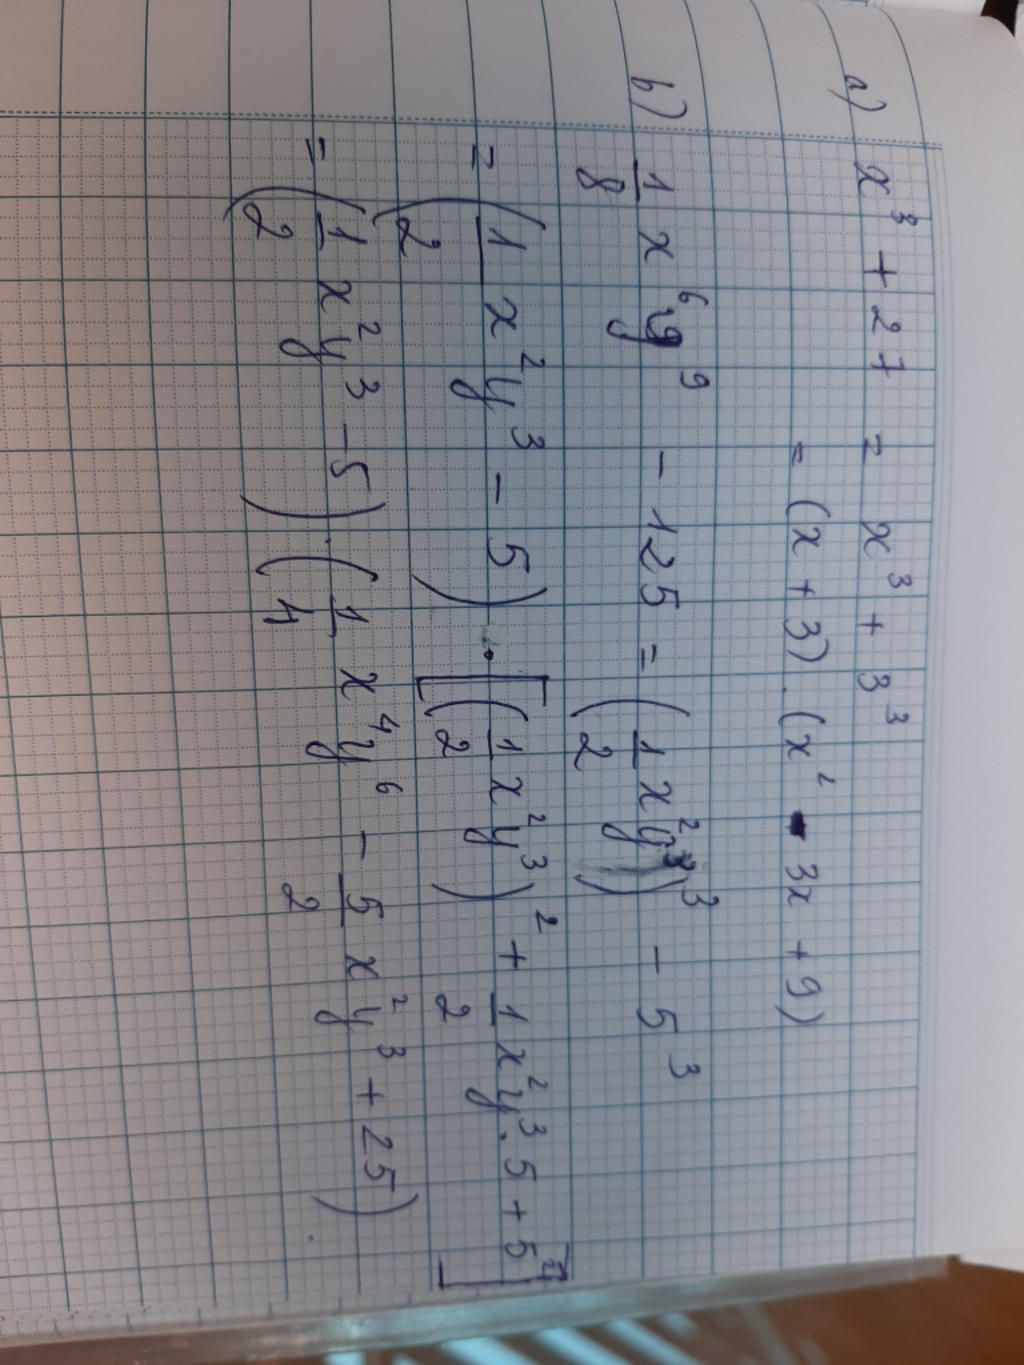 a) x³ + 27 = x³ + 3³
= (x + 3) . (x² - 3x + 9)
b) 1/8 x⁶y⁹ - 125 = (1/2 x²y³)³ - 5³
= (1/2 x²y³ - 5) . [(1/2 x²y³)² + 1/2 x²y³ . 5 + 5²]
= (1/2 x²y³ - 5) . (1/4 x⁴y⁶ - 5/2 x²y³ + 25)